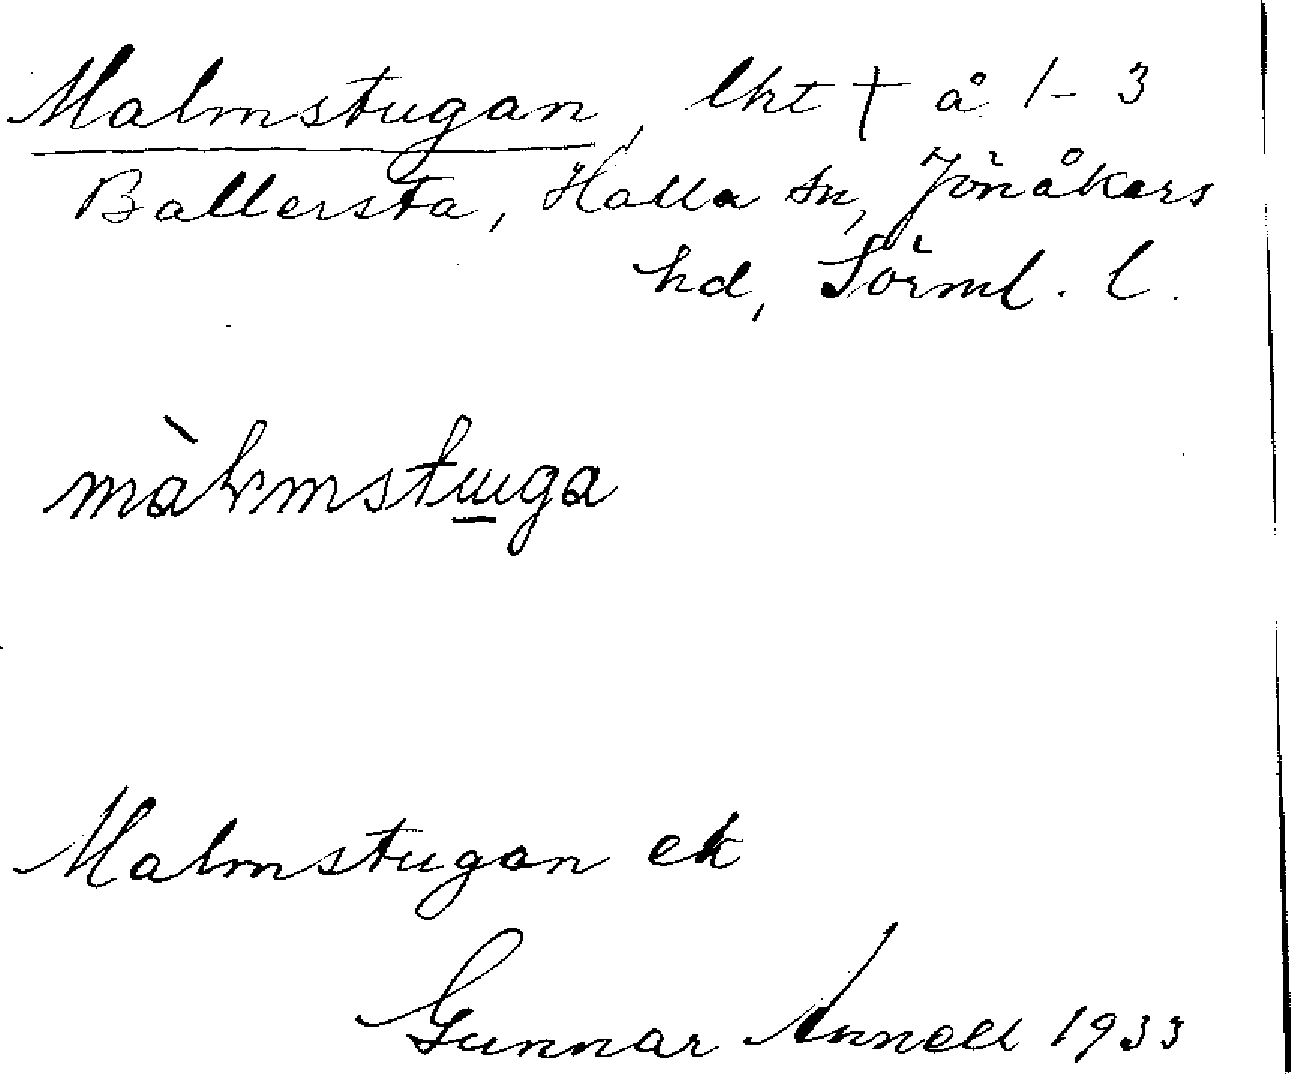 Malmstugan, lht † å 1-3
Ballersta, Halla sn, Jönåkers
hd, Sörml. l.
màlmstuga
Malmstugan ek
Gunnar Annell 1933